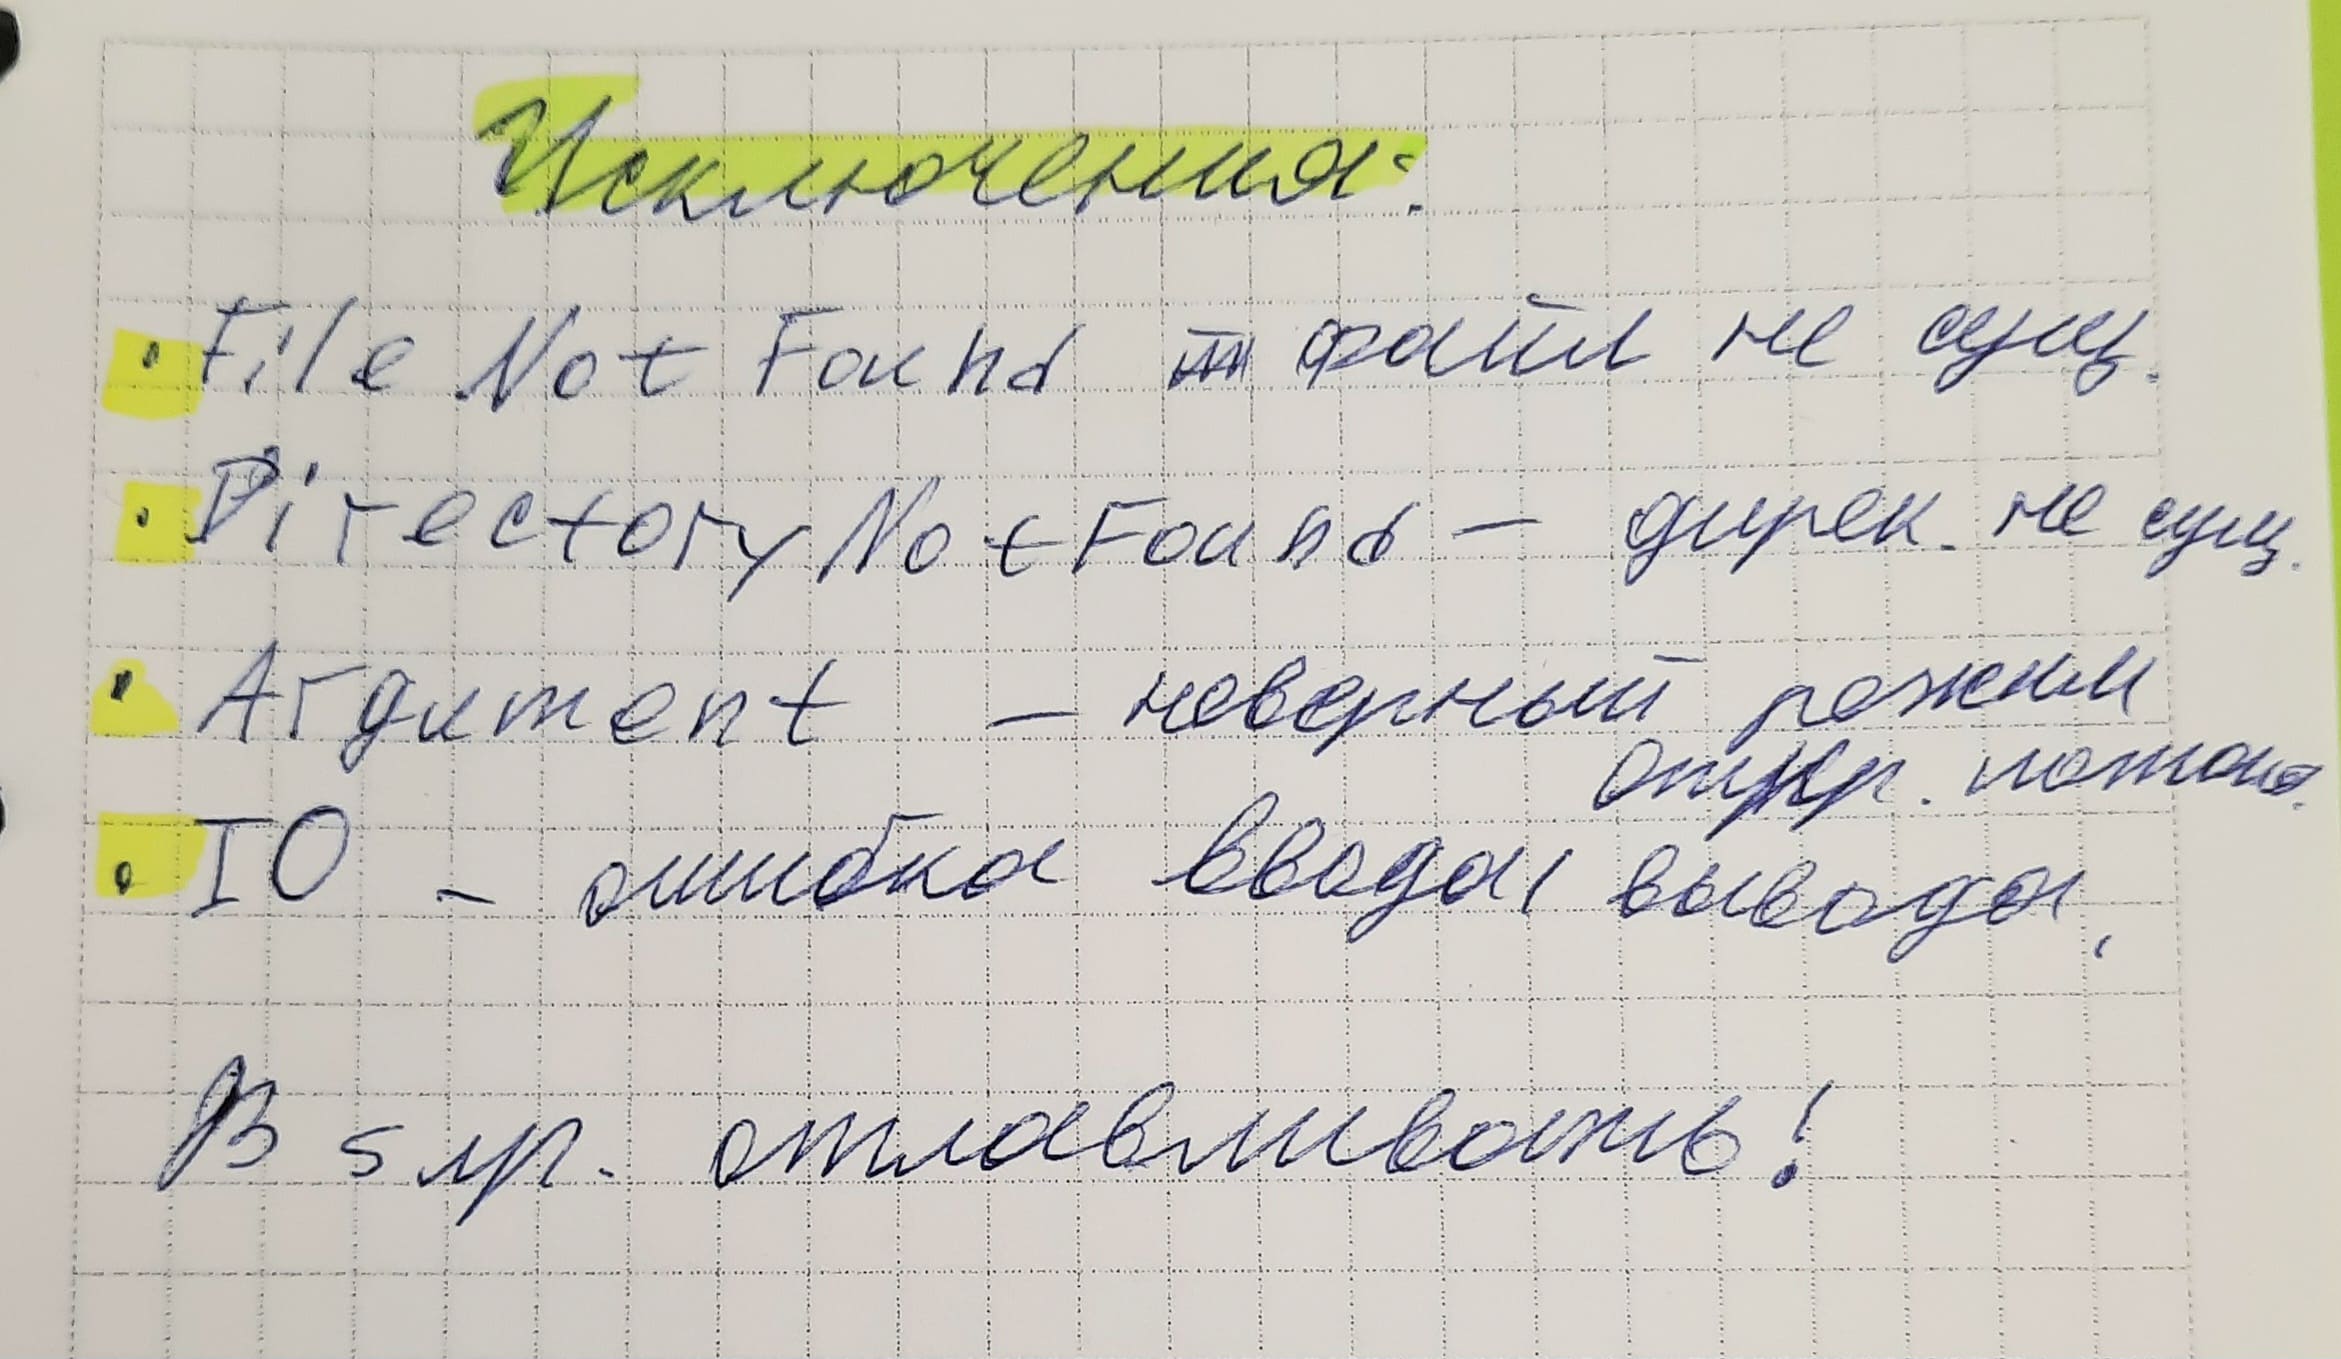 Исключения:
• File Not Found файл не сущ.
• Directory Not Found – дирек. не сущ.
• Argument – неверный режим
откр. потока.
• IO – ошибка ввода, вывода.
В 5 лр. отлавливать!